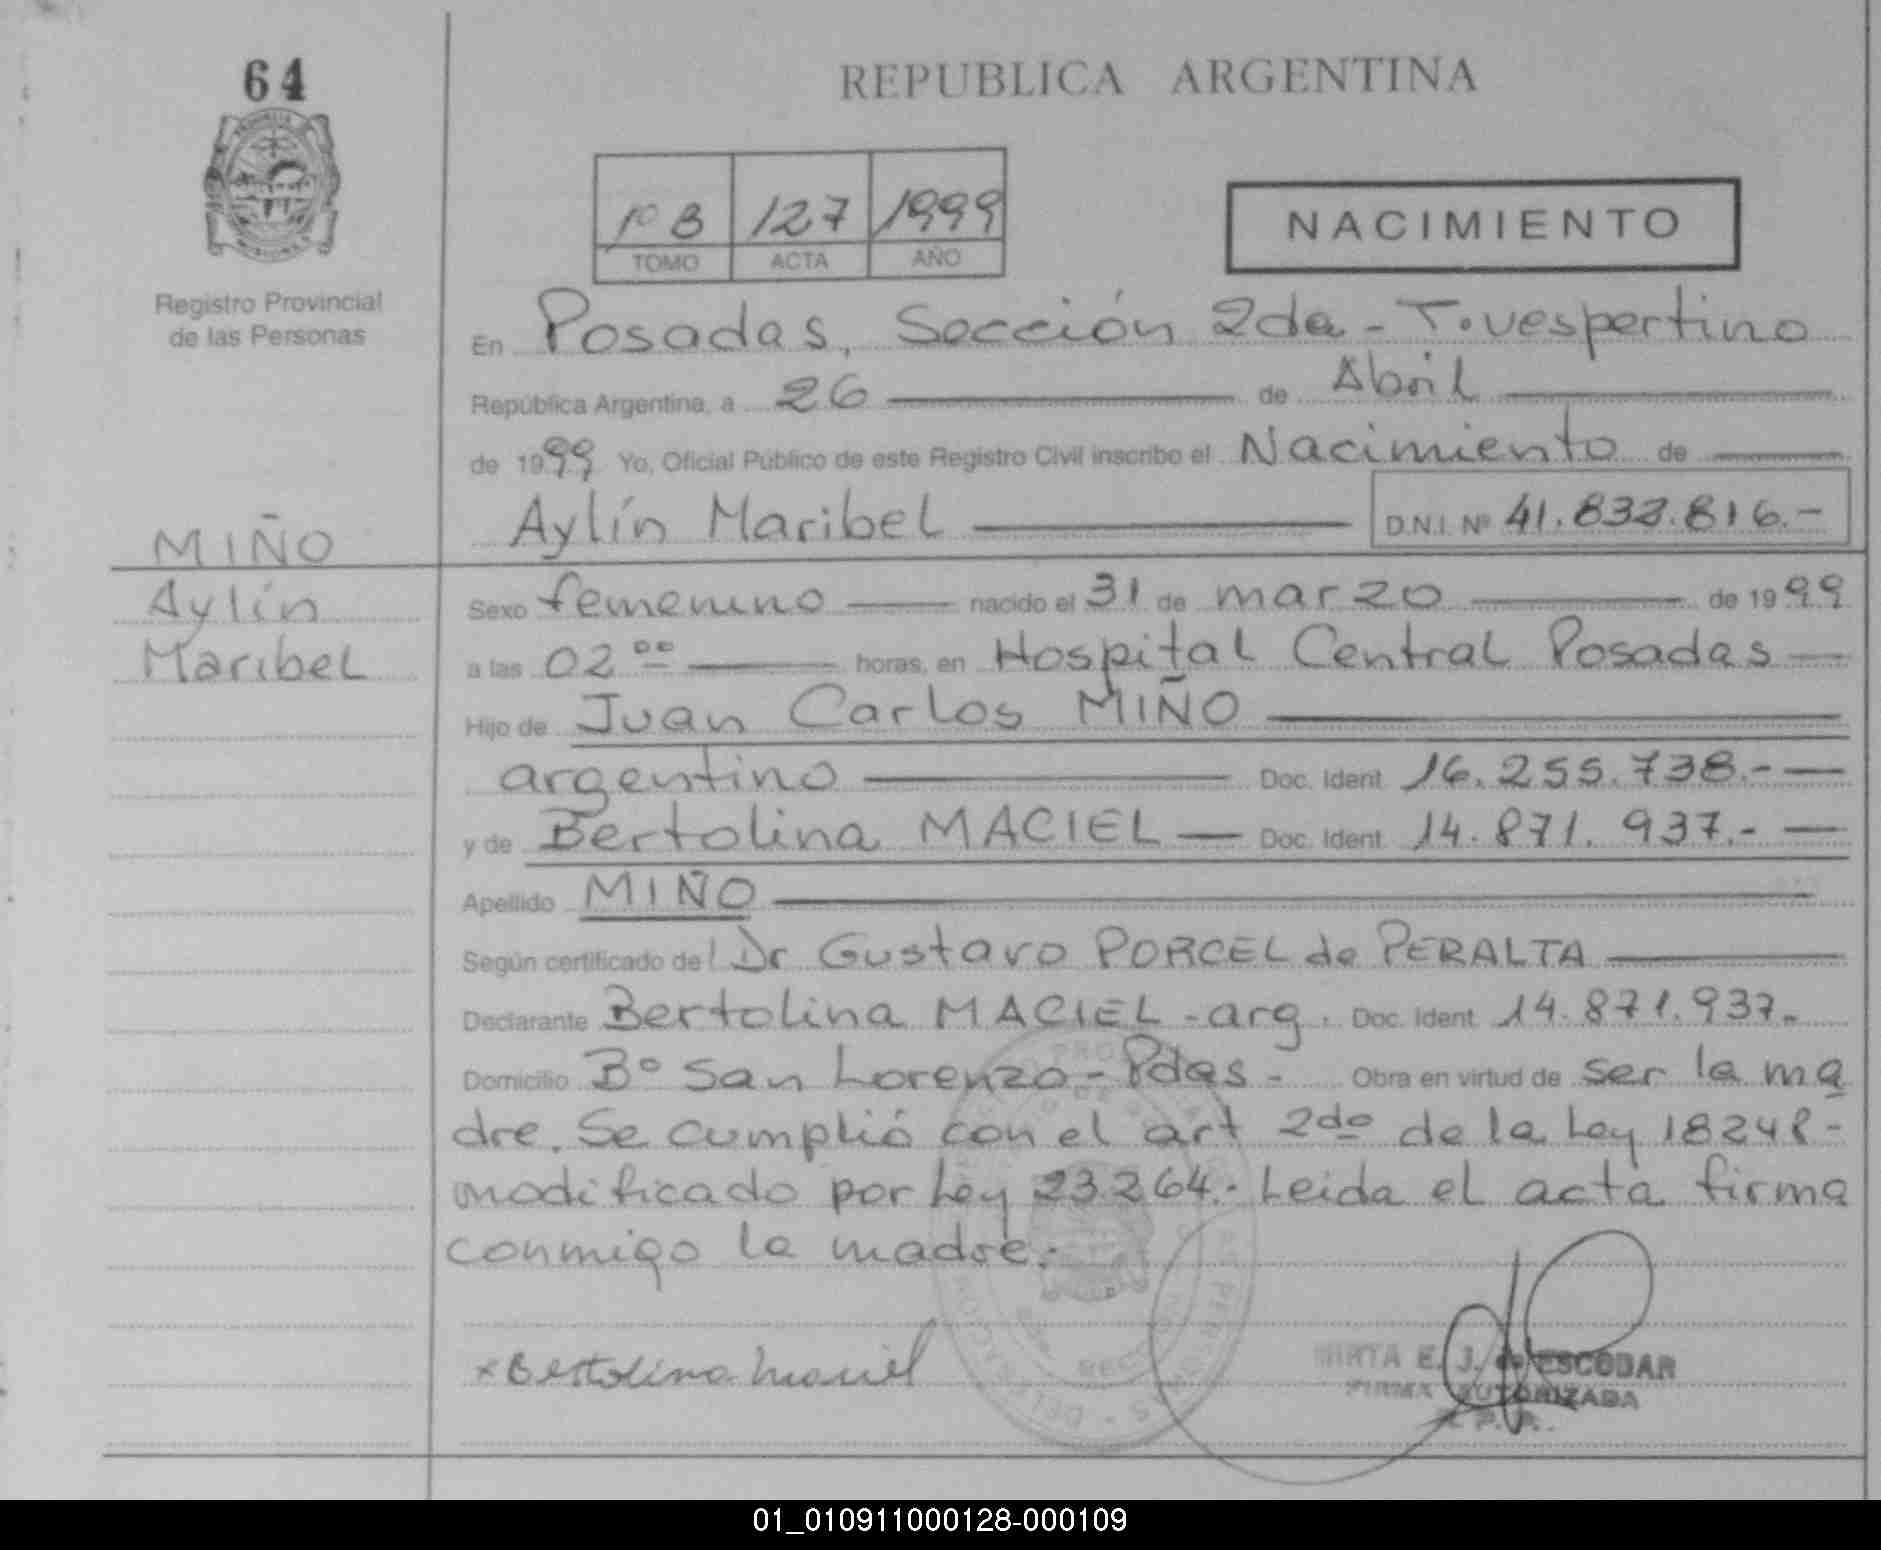 64
REPUBLICA ARGENTINA
1º B 127 1999
TOMO ACTA AÑO
NACIMIENTO
Registro Provincial
de las Personas
En Posadas, Sección 2da - T. vespertino
República Argentina, a 26 de Abril
de 1999 Yo, Oficial Público de este Registro Civil inscribo el Nacimiento de
Aylín Maribel D.N.I. Nº 41.832.816.-
MIÑO
Aylín
Maribel
Sexo femenino nacido el 31 de marzo de 1999
a las 02 00 horas, en Hospital Central Posadas
Hijo de Juan Carlos MIÑO
argentino Doc. Ident. 16.255.738.-
y de Bertolina MACIEL Doc. Ident. 14.871.937.-
Apellido MIÑO
Según certificado del Dr Gustavo PORCEL de PERALTA
Declarante Bertolina MACIEL - arg. Doc. Ident. 14.871.937.-
Domicilio Bº San Lorenzo - Pdas - Obra en virtud de ser la ma
dre. Se cumplió con el art 2do de la Ley 18248 -
modificado por Ley 23.264.- Leida el acta firma
conmigo la madre.-
x Bertolina Maciel
MIRTA E. J. de ESCOBAR
FIRMA AUTORIZADA
01_010911000128-000109